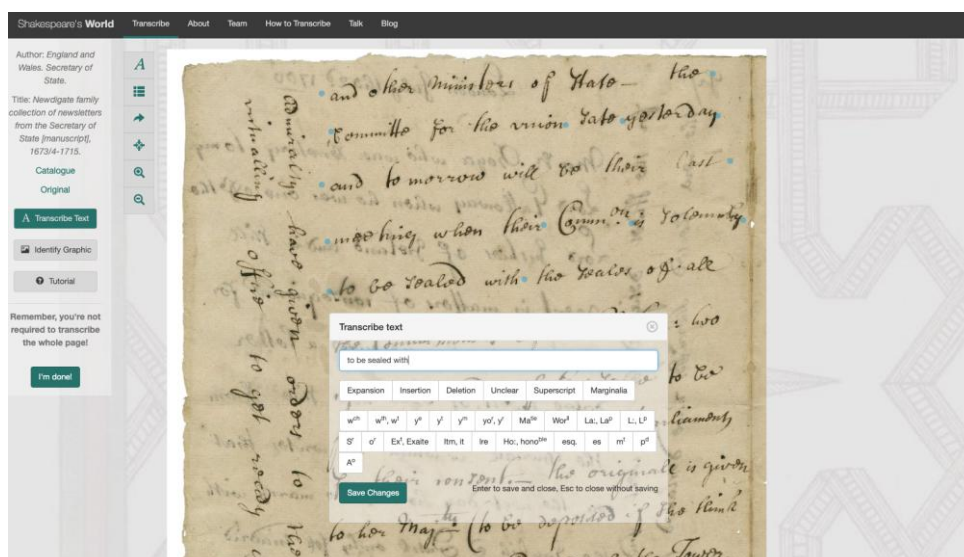 Shakespeare's World
Transcribe About Team How to Transcribe Talk Blog
Author: England and
Wales. Secretary of
State.
Title: Newdigate family
collection of newsletters
from the Secretary of
State [manuscript],
1673/4-1715.
Catalogue
Original
A Transcribe Text
Identify Graphic
? Tutorial
Remember, you're not
required to transcribe
the whole page!
I'm done!
A
and other ministers of State — the
Committe for the union Sate yesterday
and to morrow will be their Last
meeting when their Commons is Solemnly
to be Sealed with the Seales of all
two
to be
liament
their consent the originall is given
to her Maj^tie (to be deposited if She think
Tower
Admiraltye have given orders to the
victualling office to get ready
Transcribe text
to be sealed with
Expansion Insertion Deletion Unclear Superscript Marginalia
w^ch w^th, w^t y^e y^t y^m yo^r, y^r Ma^tie Wor^ll La:, La^p L:, L^p
S^r o^r Ex^t, Exalte Itm, it Ire Ho:, hono^ble esq. es m^t p^d
A^o
Save Changes
Enter to save and close, Esc to close without saving